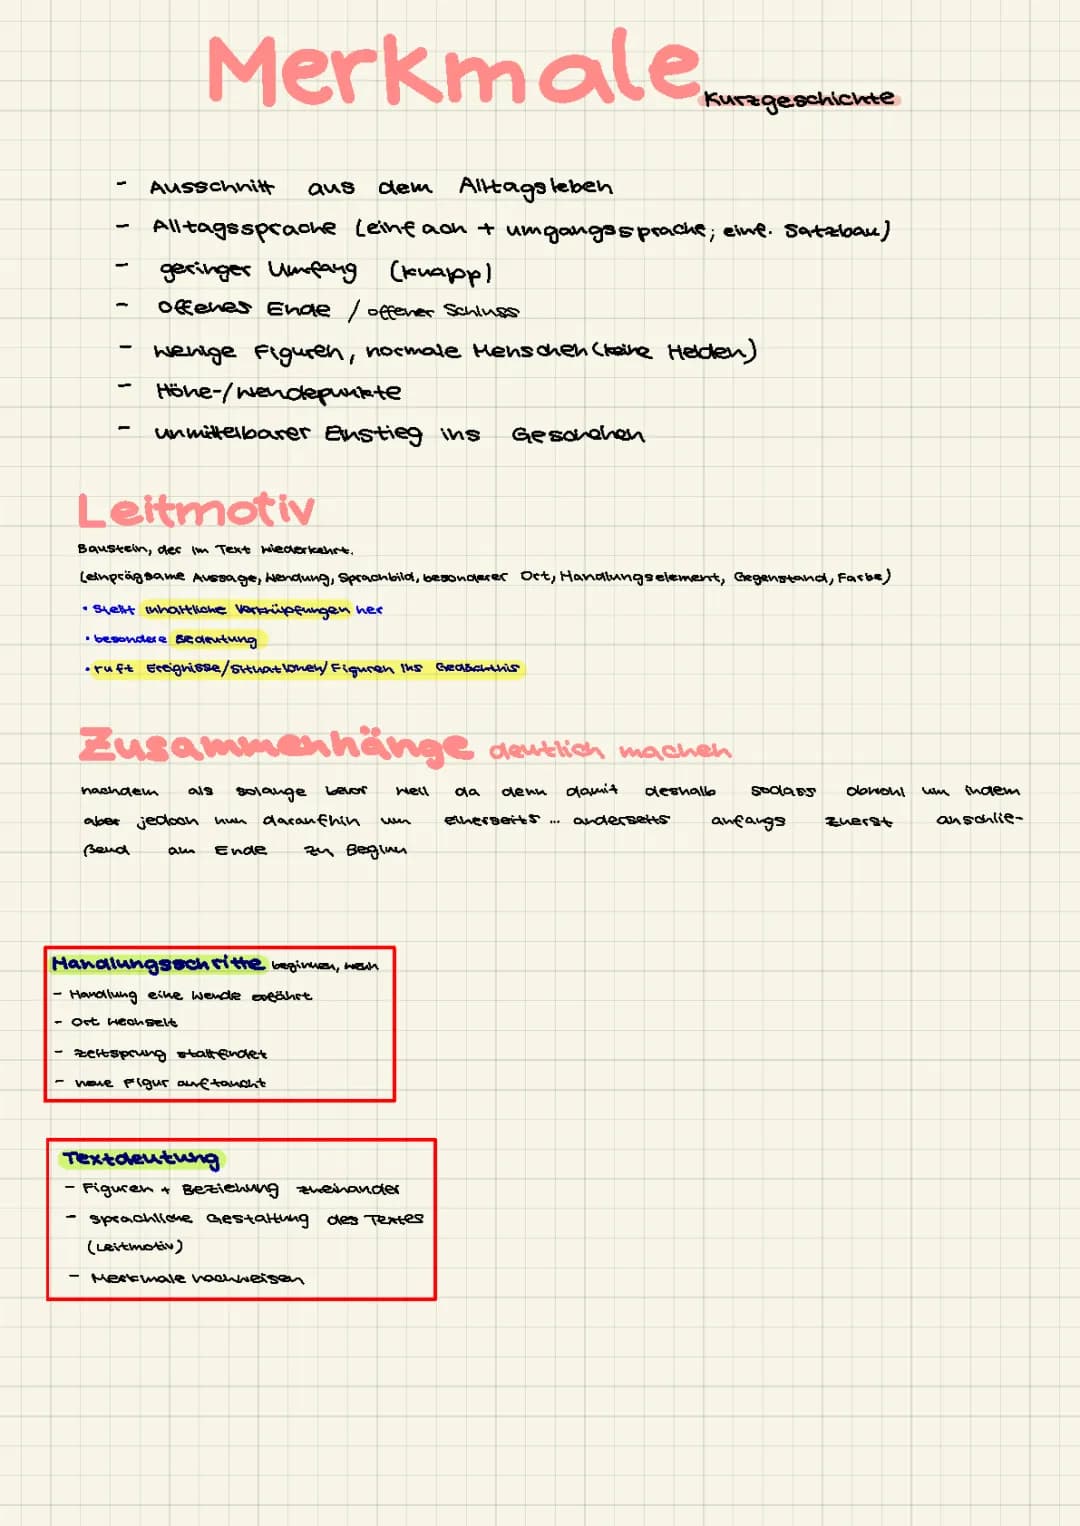 Merkmale Kurzgeschichte
- Ausschnitt aus dem Alltagsleben
- Alltagssprache (einfach + umgangssprache; einf. Satzbau)
- geringer Umfang (knapp)
- offenes Ende / offener Schluss
- wenige Figuren, normale Menschen (keine Helden)
- Höhe-/wendepunkte
- unmittelbarer Einstieg ins Geschehen
Leitmotiv
Baustein, der im Text wiederkehrt.
(einprägsame Aussage, Wendung, Sprachbild, besonderer Ort, Handlungselement, Gegenstand, Farbe)
• stellt inhaltliche Verknüpfungen her
• besondere Bedeutung
• ruft Ereignisse/Situationen/Figuren ins Gedächtnis
Zusammenhänge deutlich machen
nachdem als solange bevor weil da denn damit deshalb sodass obwohl um indem
aber jedoch nun daraufhin um einerseits ... anderseits anfangs zuerst anschlie-
ßend am Ende zu Beginn
Handlungsschritte beginnen, wenn
- Handlung eine Wende erfährt
- Ort wechselt
- zeitsprung stattfindet
- neue Figur auftaucht
Textdeutung
- Figuren + Beziehung zueinander
- sprachliche Gestaltung des Textes
(Leitmotiv)
- Merkmale nachweisen